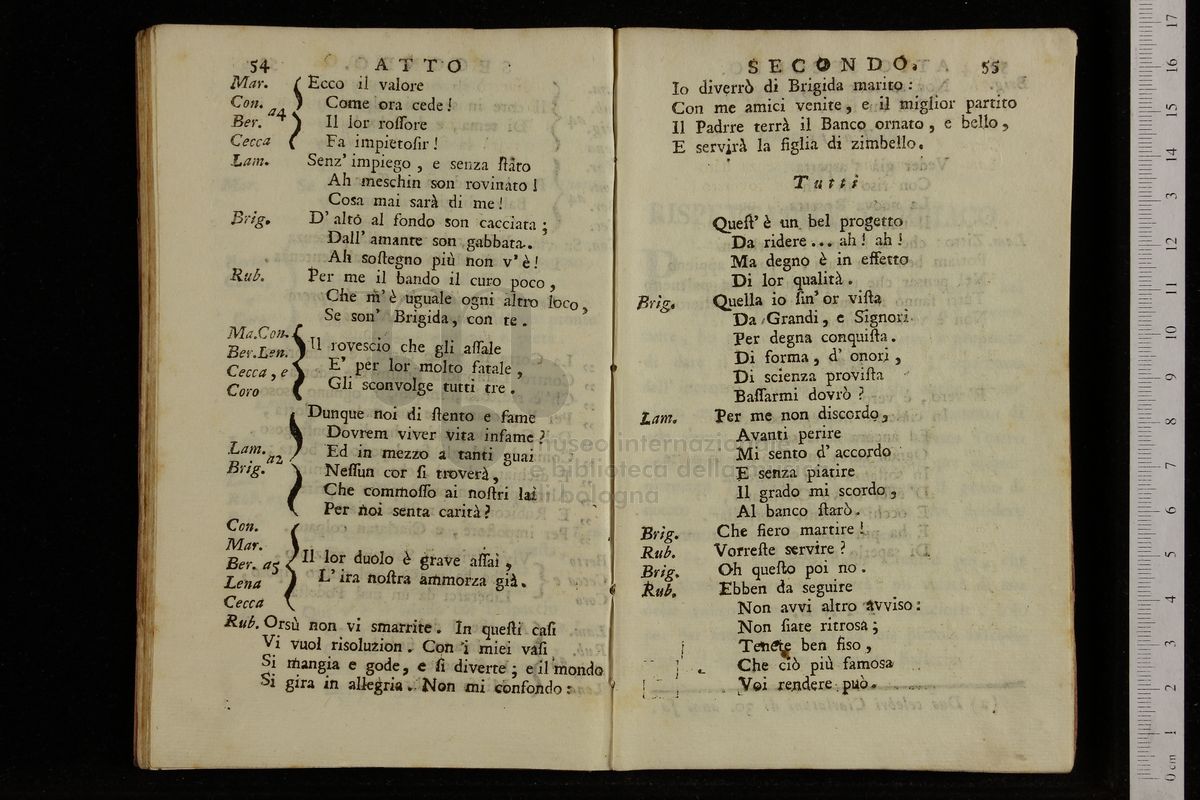 54 ATTO
Mar. Ecco il valore
Con. a4 Come ora cede!
Ber. Il lor roſſore
Cecca Fa impietoſir!
Lam. Senz' impiego, e senza ſtato
Ah meschin son rovinato!
Cosa mai sarà di me!
Brig. D' alto al fondo son cacciata;
Dall' amante son gabbata.
Ah soſtegno più non v'è!
Rub. Per me il bando il curo poco,
Che m' è uguale ogni altro loco,
Se son' Brigida, con te.
Ma.Con.
Ber.Len. Il rovescio che gli aſſale
Cecca, e E' per lor molto fatale,
Coro Gli sconvolge tutti tre.
Dunque noi di ſtento e fame
Dovrem viver vita infame?
Lam. a2 Ed in mezzo a tanti guai
Brig. Neſſun cor ſi troverà,
Che commoſſo ai noſtri lai
Per noi senta carità?
Con.
Mar.
Ber. a5 Il lor duolo è grave aſſai,
Lena L' ira noſtra ammorza già.
Cecca
Rub. Orsù non vi smarrite. In queſti caſi
Vi vuol risoluzion. Con i miei vaſi
Si mangia e gode, e ſi diverte; e il mondo
Si gira in allegria. Non mi confondo:
SECONDO. 55
Io diverrò di Brigida marito:
Con me amici venite, e il miglior partito
Il Padrre terrà il Banco ornato, e bello,
E servirà la figlia di zimbello.
Tutti
Queſt' è un bel progetto
Da ridere... ah! ah!
Ma degno è in effetto
Di lor qualità.
Brig. Quella io ſin' or viſta
Da Grandi, e Signori
Per degna conquiſta.
Di forma, d' onori,
Di scienza proviſta
Baſſarmi dovrò?
Lam. Per me non discordo,
Avanti perire
Mi sento d' accordo
E senza piatire
Il grado mi scordo,
Al banco ſtarò.
Brig. Che fiero martire!
Rub. Vorreſte servire?
Brig. Oh queſto poi no.
Rub. Ebben da seguire
Non avvi altro avviso:
Non ſiate ritrosa;
Tenete ben fiso,
Che ciò più famosa
Voi rendere può.
museo internazionale
e biblioteca della
di bologna
0 cm 1 2 3 4 5 6 7 8 9 10 11 12 13 14 15 16 17